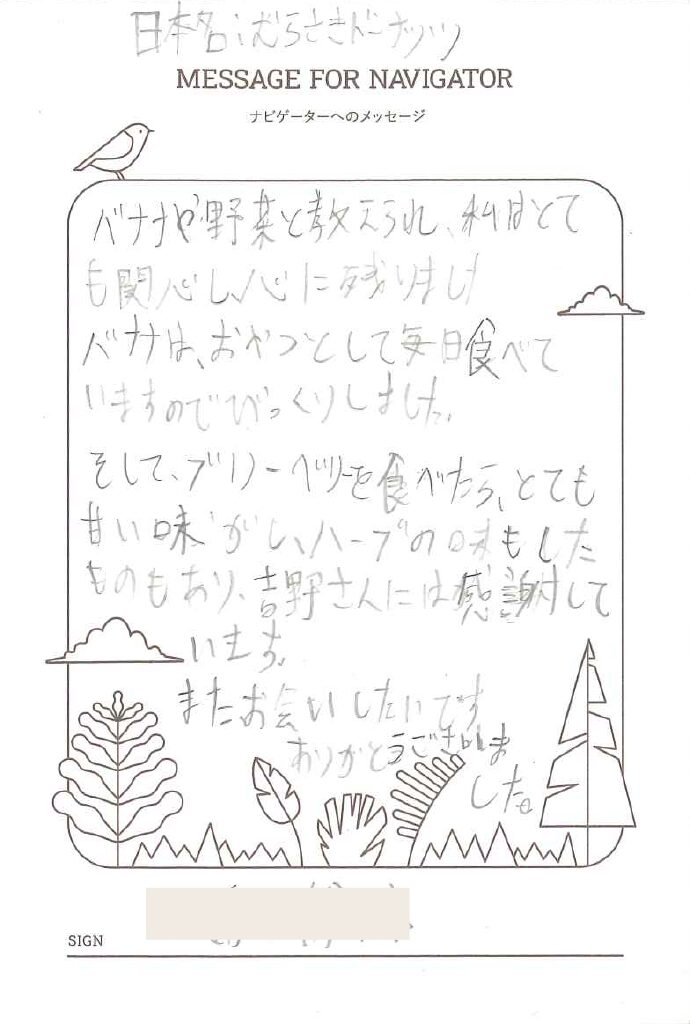 日本名:むらさきドーナッツ
MESSAGE FOR NAVIGATOR
ナビゲーターへのメッセージ
バナナや野菜と教えられ、私はとて
も関心し、心に残りました
バナナは、おやつとして毎日食べて
いますのでびっくりしました。
そして、ブリーベリーを食べたら、とても
甘い味がし、ハーブの味もした
ものもあり、吉野さんには感謝して
います。
またお会いしたいです
ありがとうございま
した。
SIGN